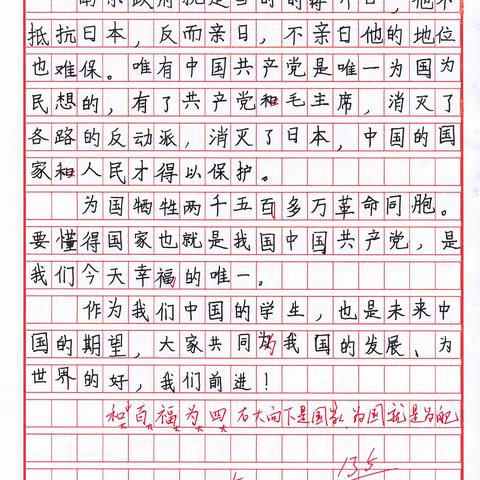 抵抗日本，反而亲日，不亲日他的地位
也难保。唯有中国共产党是唯一为国为
民想的，有了共产党和毛主席，消灭了
各路的反动派，消灭了日本，中国的国
家和人民才得以保护。
为国牺牲两千五百多万革命同胞。
要懂得国家也就是我国中国共产党，是
我们今天幸福的唯一。
作为我们中国的学生，也是未来中
国的期望，大家共同为我国的发展、为
世界的好，我们前进！
和百福为四
135